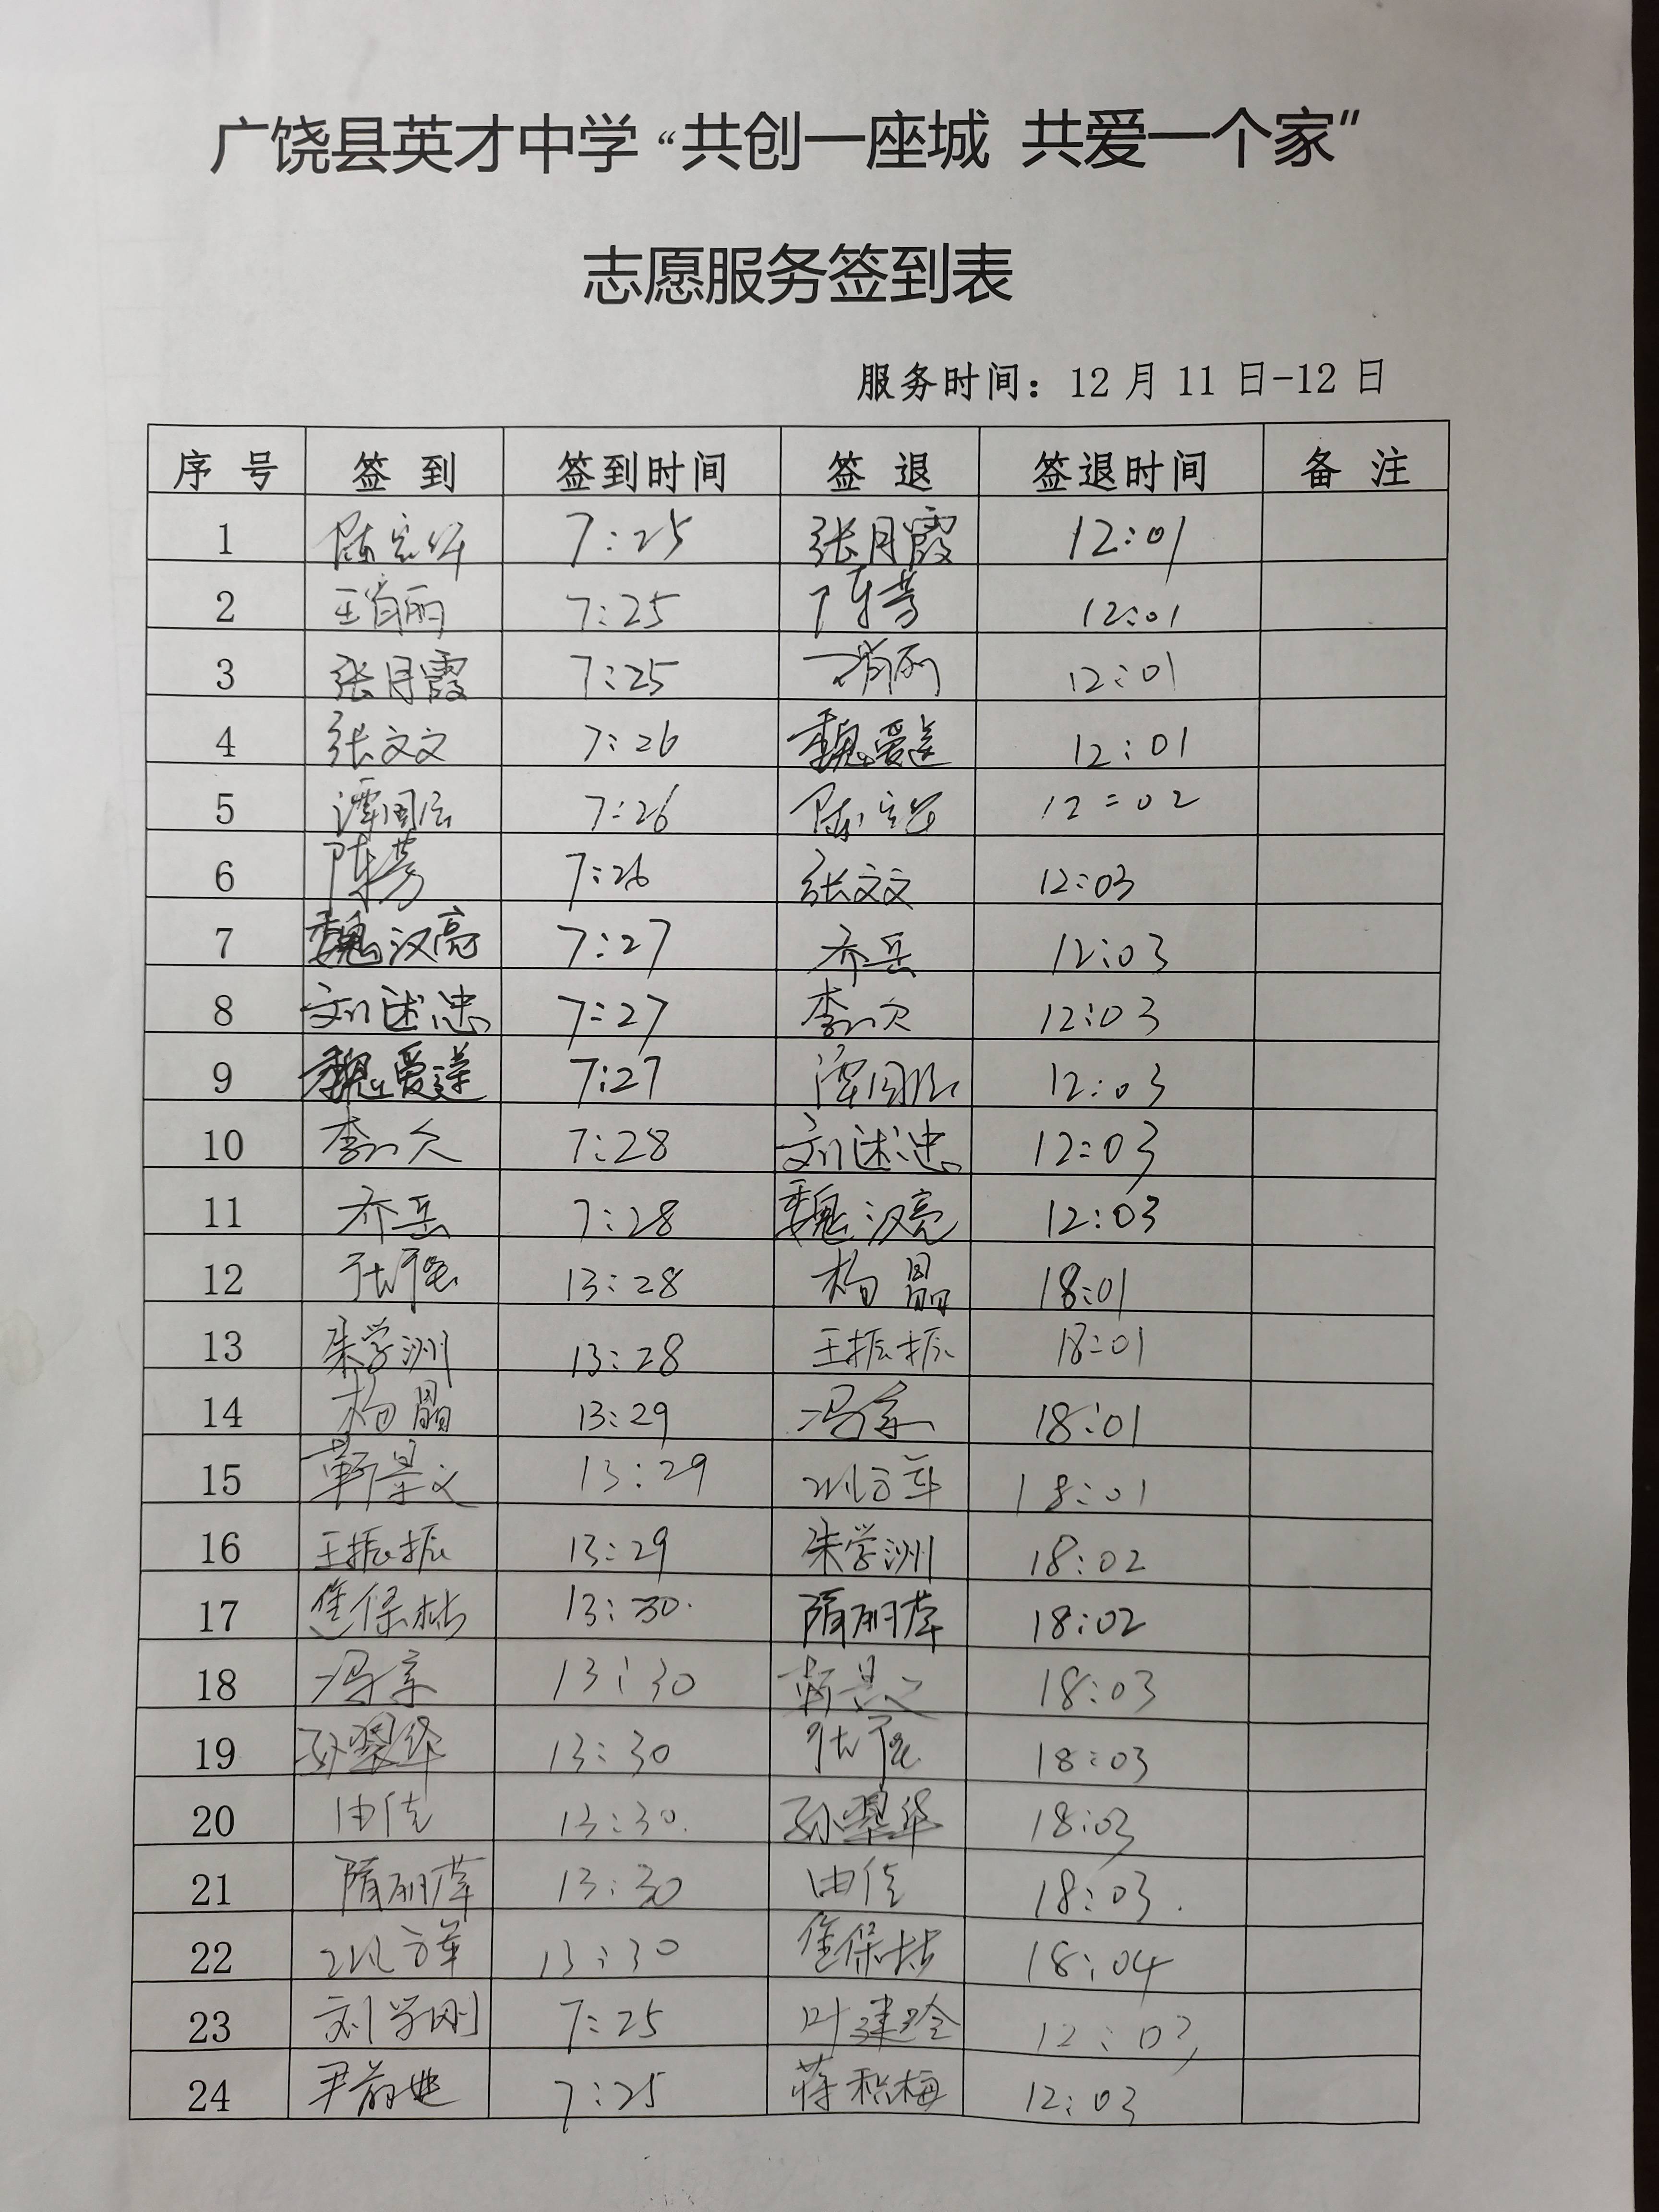 广饶县英才中学“共创一座城 共爱一个家”
志愿服务签到表
服务时间：12月11日-12日
序号 签到 签到时间 签退 签退时间 备注
1 7:25 张月霞 12:01
2 王肖丽 7:25 陈芳 12:01
3 张月霞 7:25 王肖丽 12:01
4 张文文 7:26 魏爱莲 12:01
5 谭国庆 7:26 12=02
6 陈芳 7:26 张文文 12:03
7 魏汉亮 7:27 乔岳 12:03
8 刘述忠 7:27 12:03
9 魏爱莲 7:27 12:03
10 7:28 刘述忠 12:03
11 乔岳 7:28 魏汉亮 12:03
12 张强 13:28 杨晶 18:01
13 朱学洲 13:28 王振振 18:01
14 杨晶 13:29 18:01
15 靳景文 13:29 18:01
16 王振振 13:29 朱学洲 18:02
17 13:30 隋丽萍 18:02
18 13:30 靳景文 18:03
19 孙翠华 13:30 张强 18:03
20 由佳 13:30 孙翠华 18:03
21 隋丽萍 13:30 由佳 18:03
22 13:30 18:04
23 刘学刚 7:25 叶建玲 12:03
24 7:25 蒋积梅 12:03